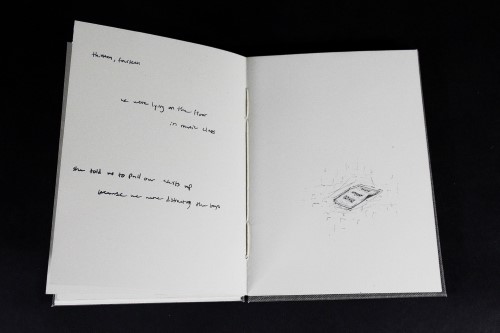 thirteen, fourteen
we were lying on the floor
in music class
she told us to pull our shirts up
because we were distracting the boys